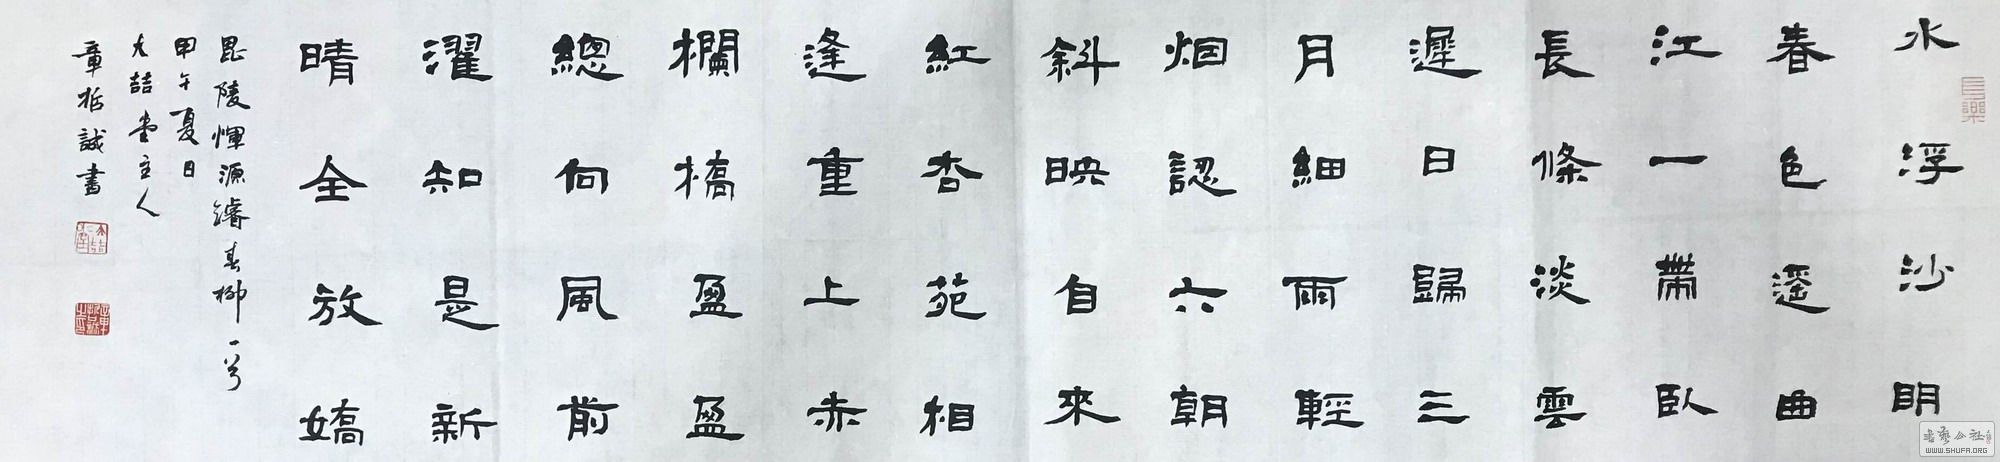 水浮沙明
春色遥曲
江一帶臥
長條淡雲
遲日歸三
月細雨輕
烟認六朝
斜映自來
紅杏苑相
逢重上赤
欄橋盈盈
總向風前
濯知是新
晴全放嬌
毘陵惲源濬春柳一首
甲午夏日
大喆堂主人
章哲誠書
長樂
WWW.SHUFA.ORG